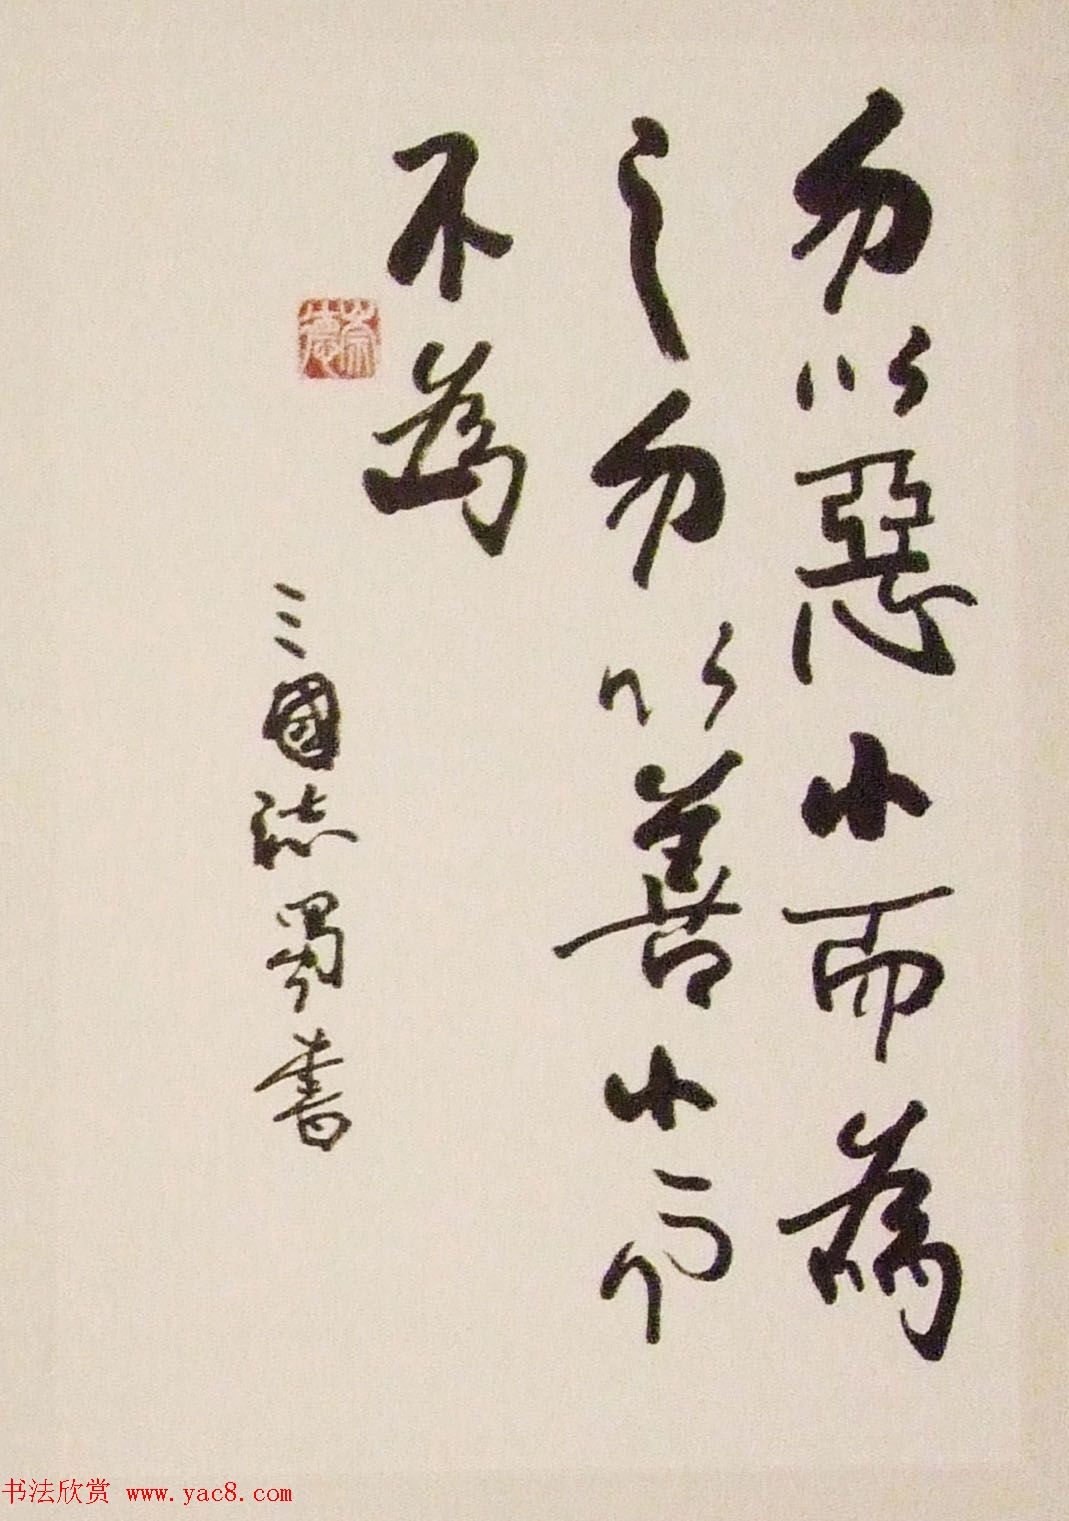 勿以惡小而為
之勿以善小而
不為
三國志蜀書
崇德
书法欣赏 www.yac8.com